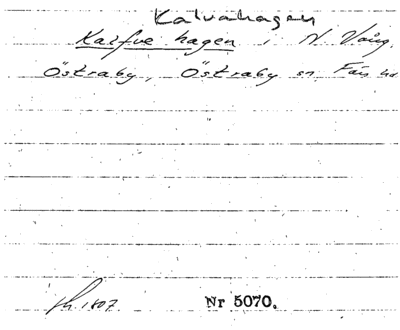 Kalvahagen
Kalfve hagen i N Vång.
Östraby, Östraby sn Färs hd
1807. Nr 5070.